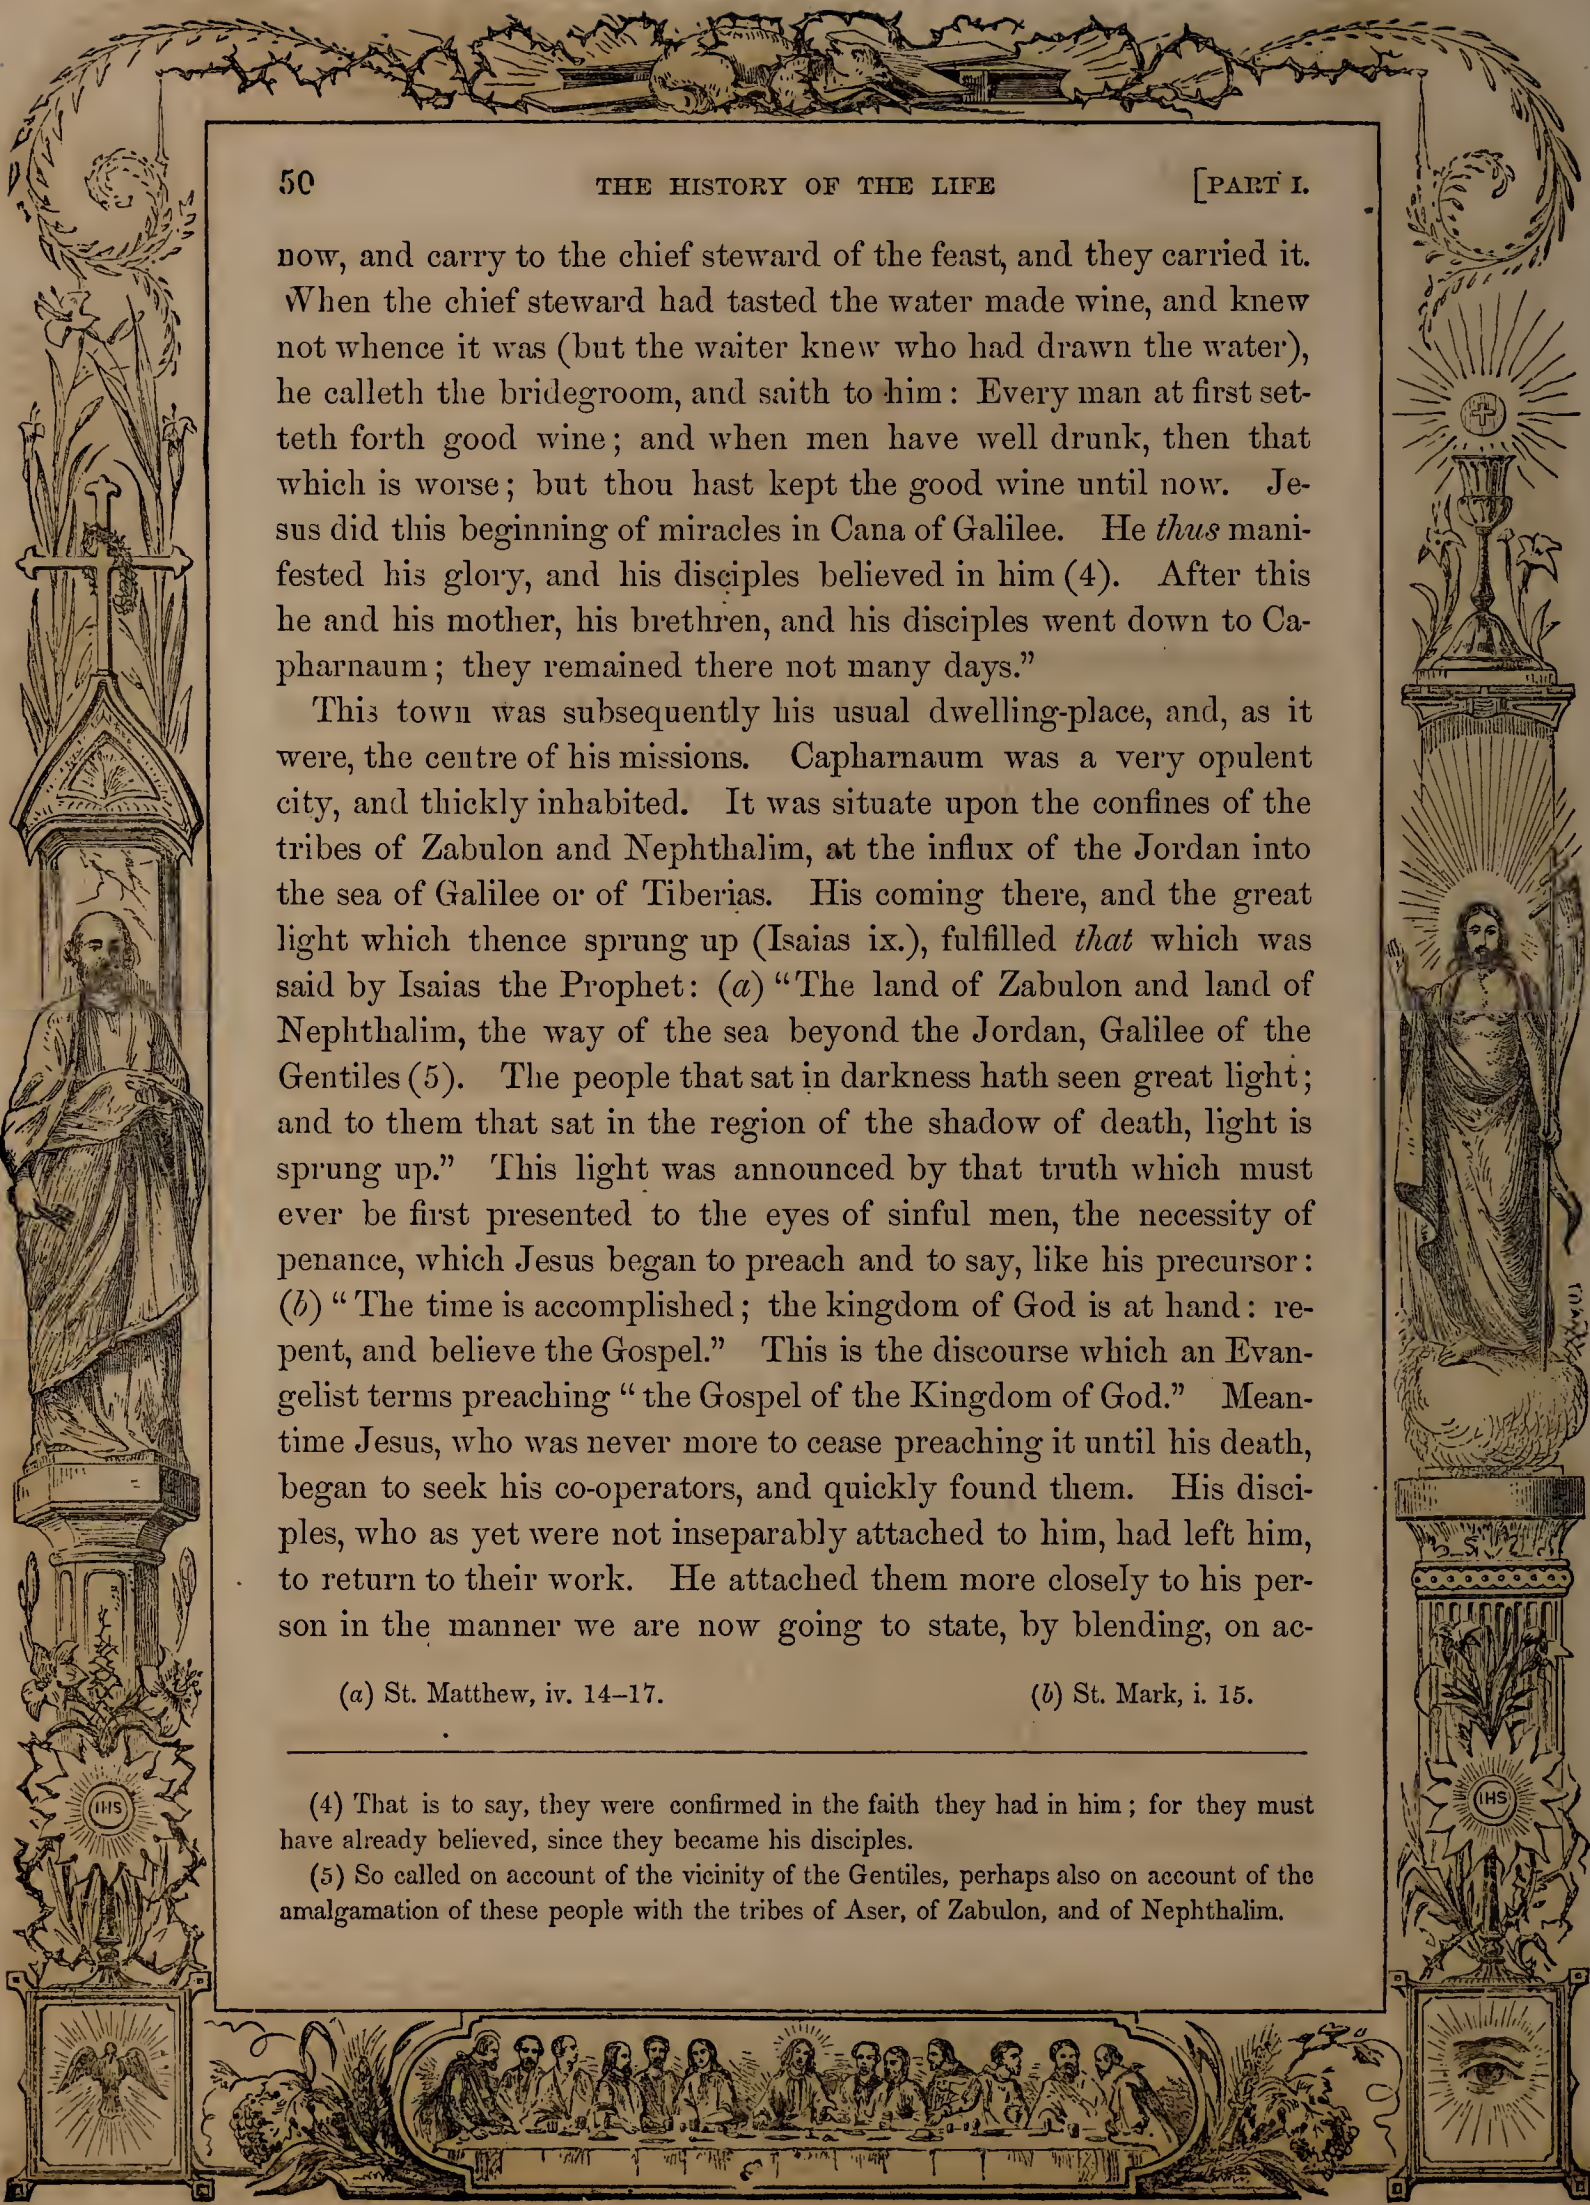 50 THE HISTORY OF THE LIFE [PART I.
now, and carry to the chief steward of the feast, and they carried it.
When the chief steward had tasted the water made wine, and knew
not whence it was (but the waiter knew who had drawn the water),
he calleth the bridegroom, and saith to him: Every man at first set-
teth forth good wine; and when men have well drunk, then that
which is worse; but thou hast kept the good wine until now. Je-
sus did this beginning of miracles in Cana of Galilee. He thus mani-
fested his glory, and his disciples believed in him (4). After this
he and his mother, his brethren, and his disciples went down to Ca-
pharnaum; they remained there not many days.”
This town was subsequently his usual dwelling-place, and, as it
were, the centre of his missions. Capharnaum was a very opulent
city, and thickly inhabited. It was situate upon the confines of the
tribes of Zabulon and Nephthalim, at the influx of the Jordan into
the sea of Galilee or of Tiberias. His coming there, and the great
light which thence sprung up (Isaias ix.), fulfilled that which was
said by Isaias the Prophet: (a) “The land of Zabulon and land of
Nephthalim, the way of the sea beyond the Jordan, Galilee of the
Gentiles (5). The people that sat in darkness hath seen great light;
and to them that sat in the region of the shadow of death, light is
sprung up.” This light was announced by that truth which must
ever be first presented to the eyes of sinful men, the necessity of
penance, which Jesus began to preach and to say, like his precursor:
(b) “The time is accomplished; the kingdom of God is at hand: re-
pent, and believe the Gospel.” This is the discourse which an Evan-
gelist terms preaching “the Gospel of the Kingdom of God.” Mean-
time Jesus, who was never more to cease preaching it until his death,
began to seek his co-operators, and quickly found them. His disci-
ples, who as yet were not inseparably attached to him, had left him,
to return to their work. He attached them more closely to his per-
son in the manner we are now going to state, by blending, on ac-
(a) St. Matthew, iv. 14–17. (b) St. Mark, i. 15.
(4) That is to say, they were confirmed in the faith they had in him; for they must
have already believed, since they became his disciples.
(5) So called on account of the vicinity of the Gentiles, perhaps also on account of the
amalgamation of these people with the tribes of Aser, of Zabulon, and of Nephthalim.
IHS
IHS